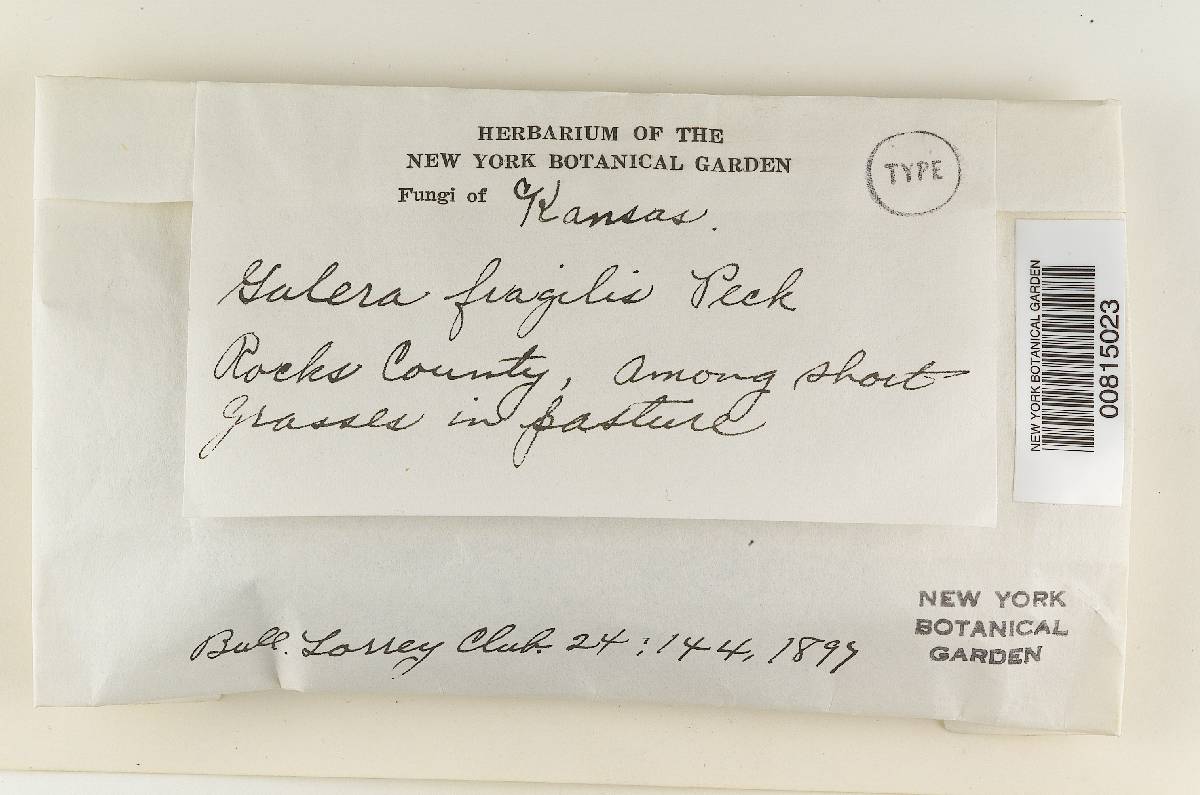 HERBARIUM OF THE
NEW YORK BOTANICAL GARDEN
TYPE
Fungi of Kansas.
Galera fragilis Peck
Rocks County, among short
grasses in pasture
NEW YORK BOTANICAL GARDEN
00815023
Bull. Torrey Club. 24:144, 1897
NEW YORK
BOTANICAL
GARDEN